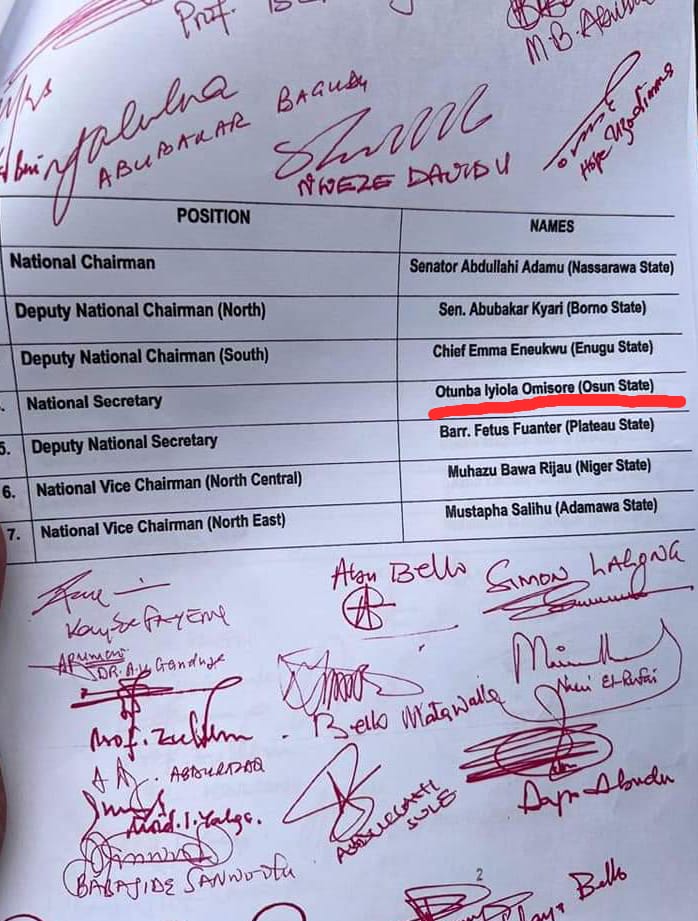 Prof.
M.B.
ABUBAKAR BAGUDU
NWEZE DAVID U
Hope Uzodimma
POSITION NAMES
National Chairman Senator Abdullahi Adamu (Nassarawa State)
Deputy National Chairman (North) Sen. Abubakar Kyari (Borno State)
Deputy National Chairman (South) Chief Emma Eneukwu (Enugu State)
. National Secretary Otunba Iyiola Omisore (Osun State)
5. Deputy National Secretary Barr. Fetus Fuanter (Plateau State)
6. National Vice Chairman (North Central) Muhazu Bawa Rijau (Niger State)
7. National Vice Chairman (North East) Mustapha Salihu (Adamawa State)
Atsu BELLO SIMON LALONG
KAYODE FAYEMI
DR. A.U. Ganduje
Nasir El-Rufai
Bello Matawalle
Prof. Zulum
AA. ABDULRAZAQ
ABDULLAHI SULE
Dapo Abiodun
BABAJIDE SANWOOLU
2
Yahaya Bello